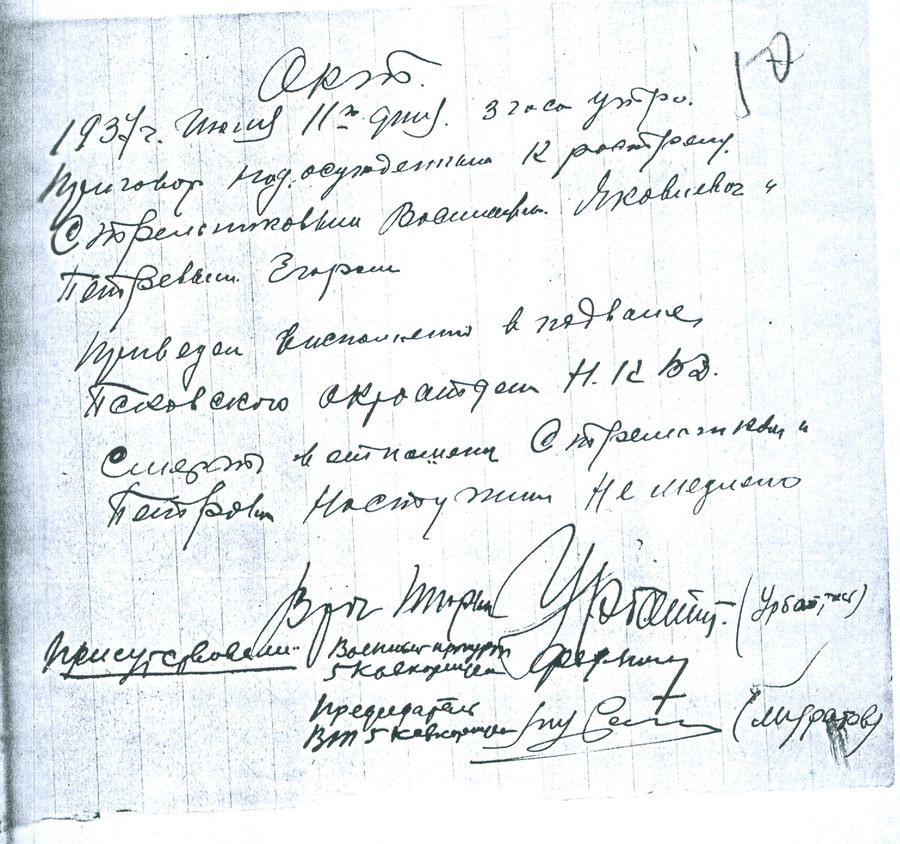 Акт.
1937 г. Июня 11го дня. 3 часа утра.
Приговор над осужденным к расстрелу.
Стрельниковым Василием Яковлевич и
Петровым Егором
Приведен висполнено в подвале,
Псковского окротдела Н.К.ВД.
Смерть в отношен и
Петрова Наступила Немедлено
Врач Тюрьм (
Присутствовали. Военный прокурор
5 Кавкорпуса
Председатель
ВТ 5 Кавкорпуса (Муратов)